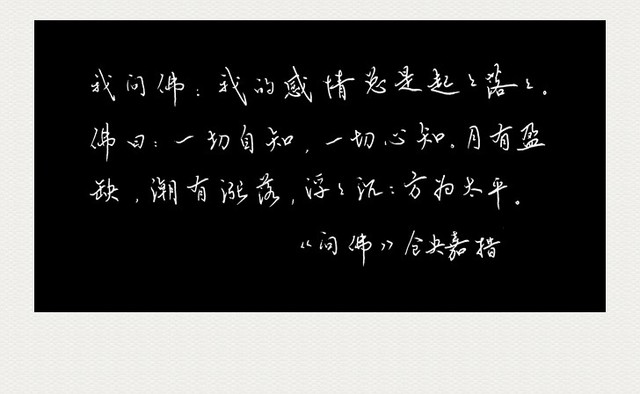 我问佛：我的感情总是起々落々。
佛曰：一切自知，一切心知。月有盈
缺，潮有涨落，浮々沉々方为太平。
《问佛》仓央嘉措